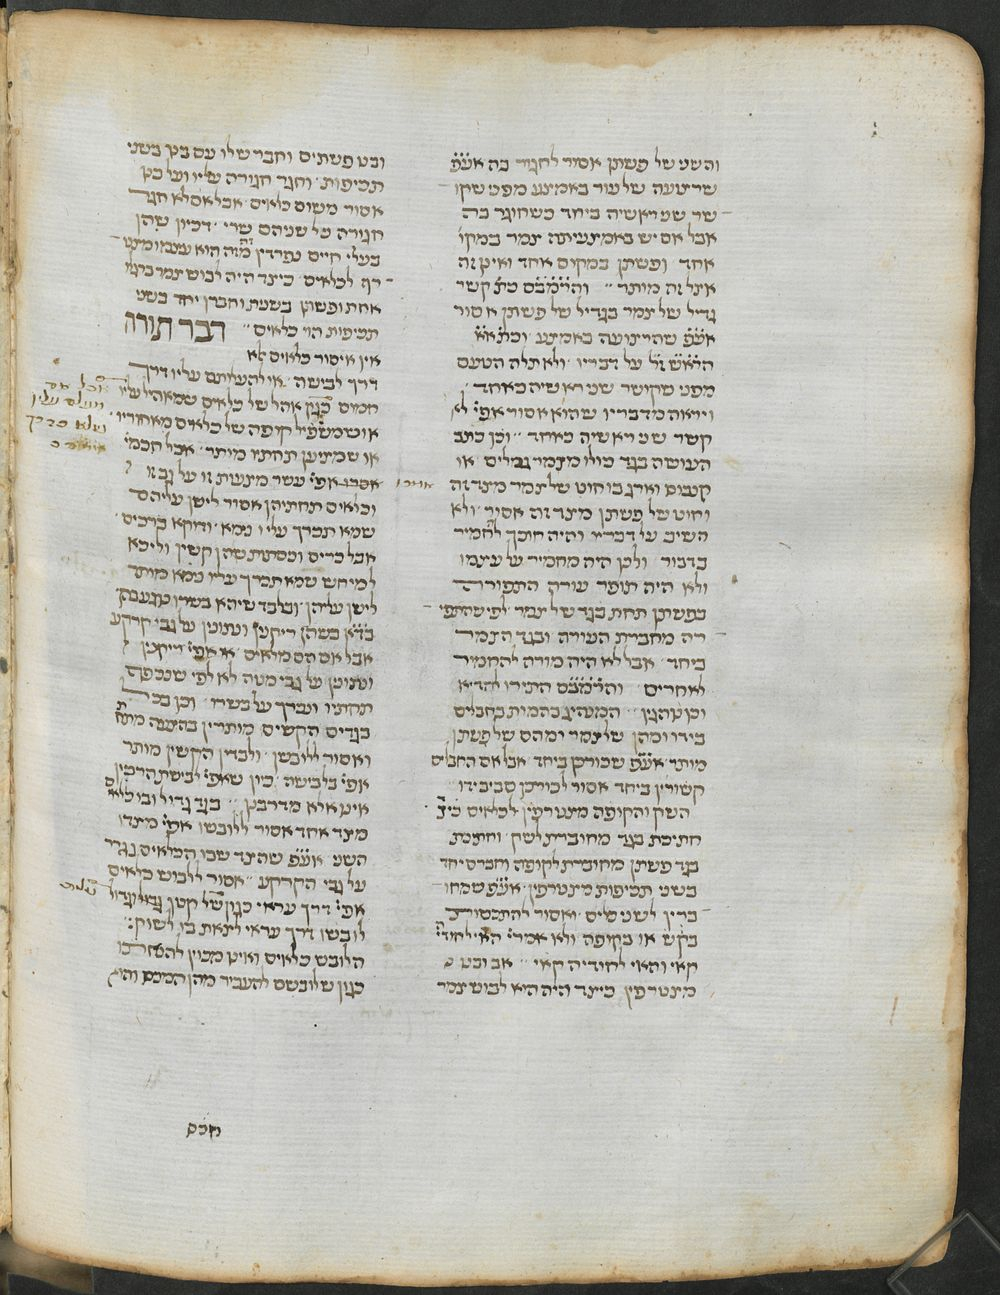 והשני של פשתן אסור לחגור בה אע״פ
שרצועה של עור באמצע מפני שקו
שר שני ראשיה ביחד כשחוגר בה
אבל אם יש באמצעיתה צמר במקו׳
אחד ופשתן במקום אחד ואינן זה
אצל זה מותר והרמב״ם כת׳ קשר
גדיל של צמר בגדיל של פשתן אסור
אע״פ שהרצועה באמצע וכת׳ א״א
הרא״ש ז״ל על דבריו ולא תלה הטעם
מפני שקושר שני ראשיה כאחד
ויראה מדבריו שהוא אסור אפי׳ לא
קשר שני ראשיה כאחד וכן כתב
העושה בגד כולו מצמר גמלים או
קנבוס וארג בו חוט של צמר מצד זה
וחוט של פשתן מצד זה אסור ולא
השיב על דבריו והיה חוכך להחמיר
בדבר ולכן היה מחמיר על עצמו
ולא היה תופר עורה התפורה
בפשתן תחת בגד של צמר לפי שהתפי
רה מחברת העורה ובגד הצמר
ביחד אבל לא היה מורה להחמיר
לאחרים והרמב״ם התירו להדיא
וכן נוהגין המנהיג בהמות בחבלים
בידו ומהן של צמר ומהם של פשתן
מותר אע״פ שכורכן ביחד אבל אם החבלים
קשורין ביחד אסור לכורכן סביב ידו
השק והקופה מצטרפין לכלאים כיצד
חתיכת בגד מחוברת לשק וחתיכת
בגד פשתן מחוברת לקופה וחברם יחד
בשני תכיפות מצטרפין אע״פ שמחו
ברין לשני כלים ואסור להתכסות
בשק או בקופה ולא אמרי׳ האי לחודי׳
קאי והאי לחודיה קאי אב ובנו
מצטרפין כיצד היה היא לבוש צמר
ובנו פשתים וחבר שלו עם בנו בשני
תכיפות וחגר חגורה עליו ועל בנו
אסור משום כלאים אבל אם לא חגר
חגורה על שניהם שרי דכיון שהן
בעלי חיים נפרדין מזה הוא עצמו מצט
רף לכלאים כיצד היה לבוש צמר ברגלו
אחת ופשתן בשנית וחברן יחד בשני
תכיפות הוי כלאים דבר תורה
אין איסור כלאים לא
דרך לבישה או להעלותם עליו דרך
חמום כגון אהל של כלאים שמאהיל עליו
או שמשפיל קופה של כלאים מאחוריו
או שמציען תחתיו מותר אבל חכמי׳
אסרו אפי׳ עשר מצעות זו על גב זו
וכלאים תחתיהן אסור לישן עליהם
שמא תכרך עליו נמא ודוקא ברכים
אבל כרים וכסתות שהן קשין וליכא
למיחש שמא תכרך עליו נמא מותר
לישן עליהן ובלבד שיהא בשרו נוגע בהן
בד״א כשהן ריקנין ונתונין על גבי קרקע
אבל אם הם מלאים או אפי׳ ריקנין
ונתונין על גבי מטה לא לפי שנכפף
תחתיו ונכרך על בשרו וכן בכל
בגדים הקשים מותרין בהצעה מתחת
ואסור ללובשן ולבדין הקשין מותר
אפי׳ בלבישה כיון שאפי׳ לבישת הרכין
אינו אלא מדרבנן בגד גדול ובו כלאים
מצד אחד אסור ללובשו אפי׳ מצדו
השני אע״פ שהצד שבו הכלאים נגרר
על גבי הקרקע אסור ללבוש כלאים
אפי׳ דרך עראי כגון של קטן גבי גדול
לובשו דרך עראי לצאת בו לשוק
הלובש כלאים ואינו מכוין להתחמם בו
כגון שלובשם להעביר מהן המכס והוא
חכם